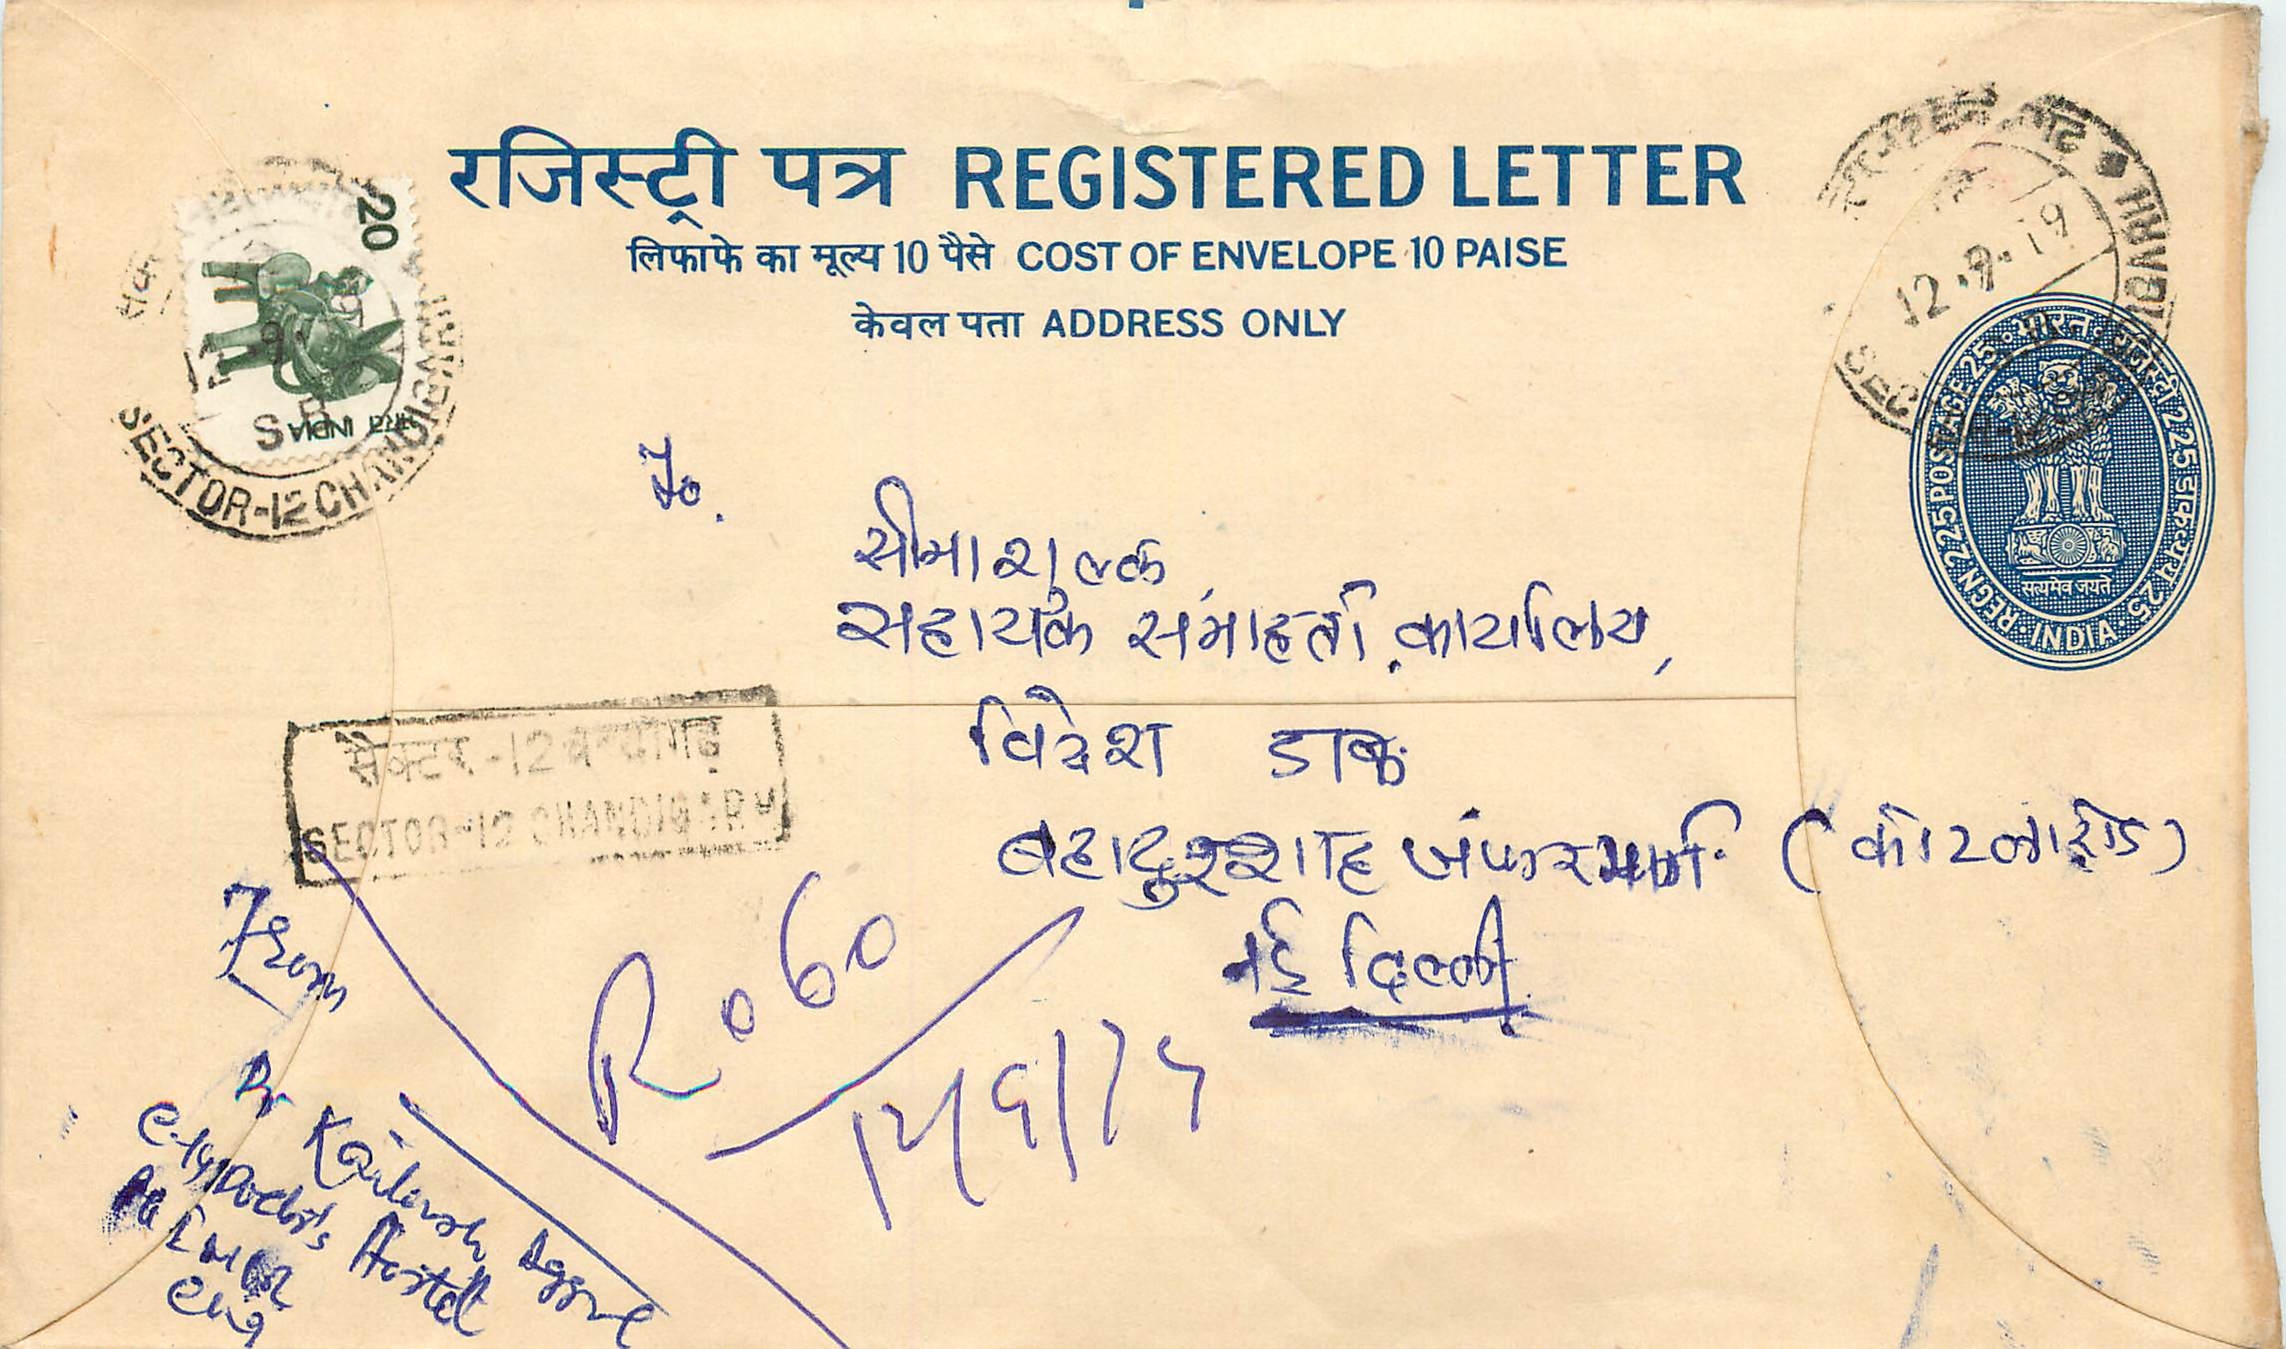 रजिस्ट्री पत्र REGISTERED LETTER
लिफाफे का मूल्य 10 पैसे COST OF ENVELOPE 10 PAISE
केवल पता ADDRESS ONLY
20
भारत INDIA
SECTOR-12 CHANDIGARH
12.9.79
भारत
REGN. 2.25 POSTAGE 25
रजिस्ट्री 2.25 डाक व्यय 25
सत्यमेव जयते
INDIA
To.
सीमा शुल्क
सहायक समाहर्ता कार्यालय,
विदेश डाक
बहादुरशाह जफर मार्ग (कोटला रोड)
नई दिल्ली
सैक्टर-12 चन्डीगढ़
SECTOR-12 CHANDIGARH
R 060
12/9/79
From
Dr Kailash
Doctor's Hostel